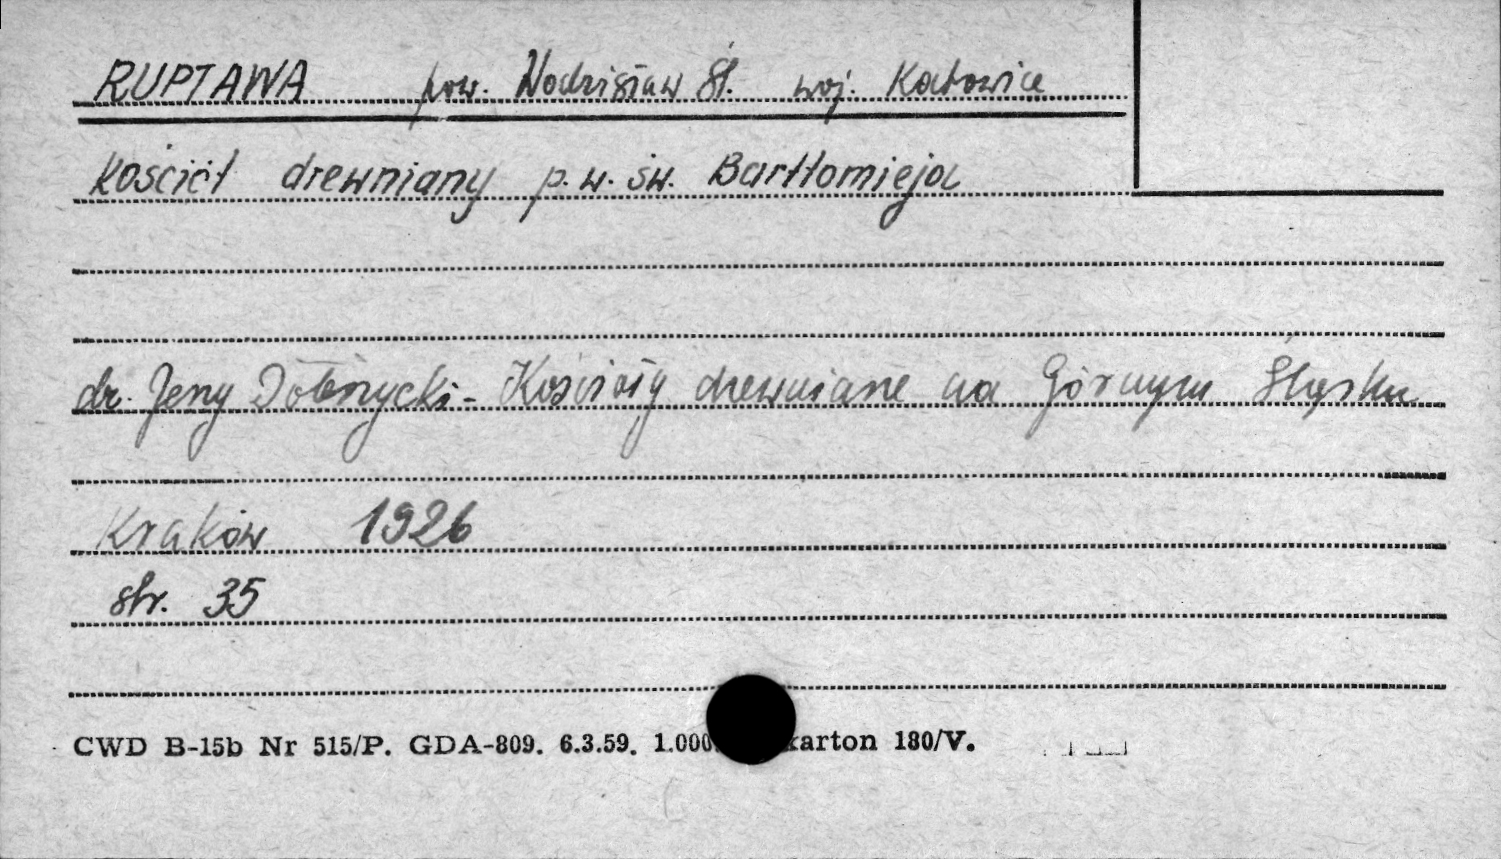 RUPTAWA pow. Wodzisław Śl. woj. Katowice
kościół drewniany p.w. św. Bartłomieja
dr. Jerzy Dobrzycki - Kościoły drewniane na Górnym Śląsku
Kraków 1926
str. 35
CWD B-15b Nr 515/P. GDA-809. 6.3.59. 1.000 karton 180/V.